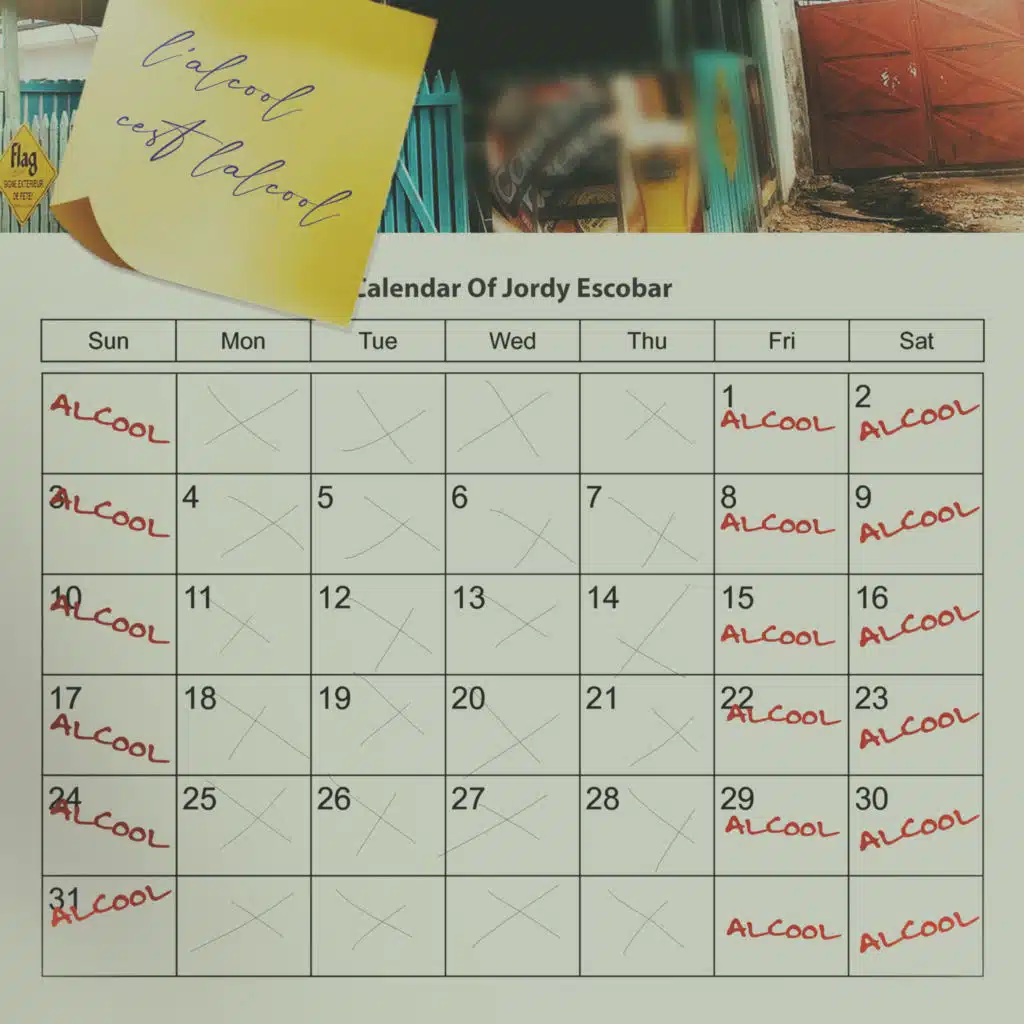 l'alcool
cest lalcool
flag
SIGNE EXTERIEUR
DE FETE!
Calendar Of Jordy Escobar
Sun Mon Tue Wed Thu Fri Sat
ALCOOL 1 ALCOOL 2 ALCOOL
3 ALCOOL 4 5 6 7 8 ALCOOL 9 ALCOOL
10 ALCOOL 11 12 13 14 15 ALCOOL 16 ALCOOL
17 ALCOOL 18 19 20 21 22 ALCOOL 23 ALCOOL
24 ALCOOL 25 26 27 28 29 ALCOOL 30 ALCOOL
31 ALCOOL ALCOOL ALCOOL